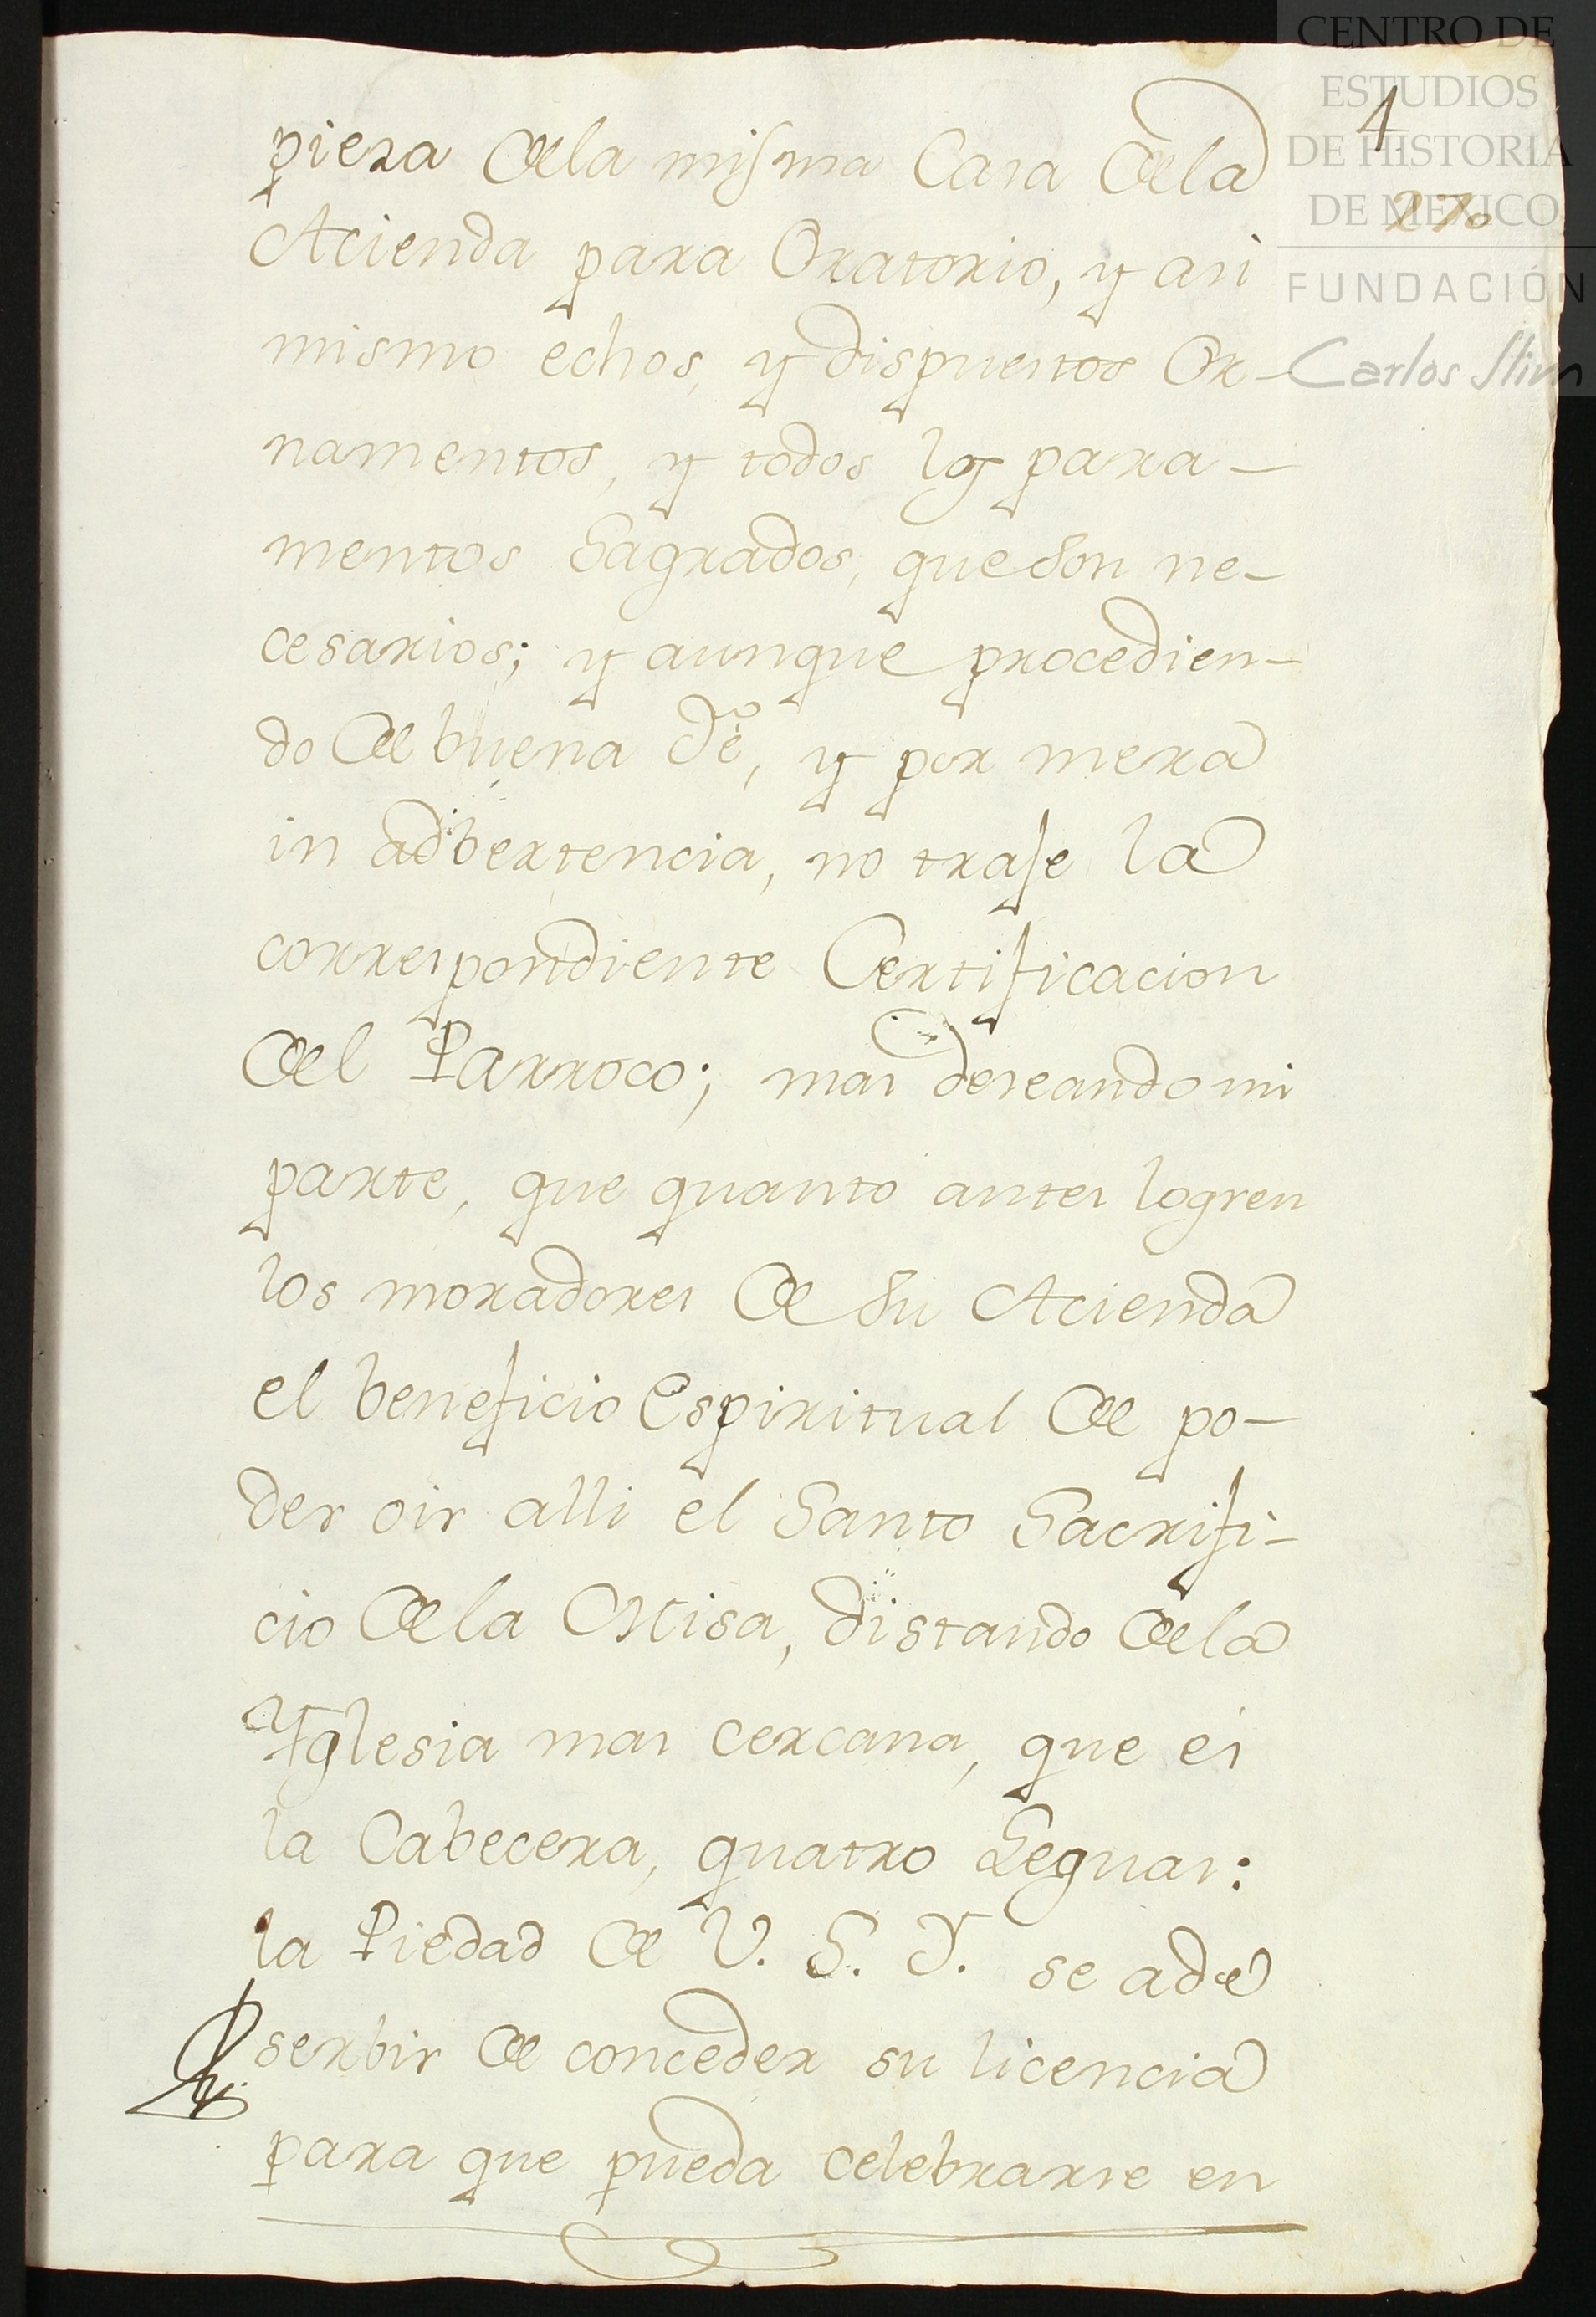 CENTRO DE
ESTUDIOS
DE HISTORIA
DE MEXICO
FUNDACIÓN
Carlos Slim
4
270
pieza dela misma Casa dela
Acienda para Oratorio, y asi
mismo echos, y dispuestos Or-
namentos, y todos los para-
mentos Sagrados, que son ne-
cesarios; y aunque procedien-
do de buena Fè, y por mera
in adbertencia, no traje la
correspondiente Certificacion
del Parroco; mas deseando mi
parte, que quanto antes logren
los moradores de su Acienda
el beneficio Espiritual de po-
der oir alli el Santo Sacrifi-
cio dela Misa, distando dela
Yglesia mas cercana, que es
la Cabecera, quatro Leguas:
la Piedad de V. S. Y. se ade
serbir de conceder su licencia
para que pueda celebrarse en